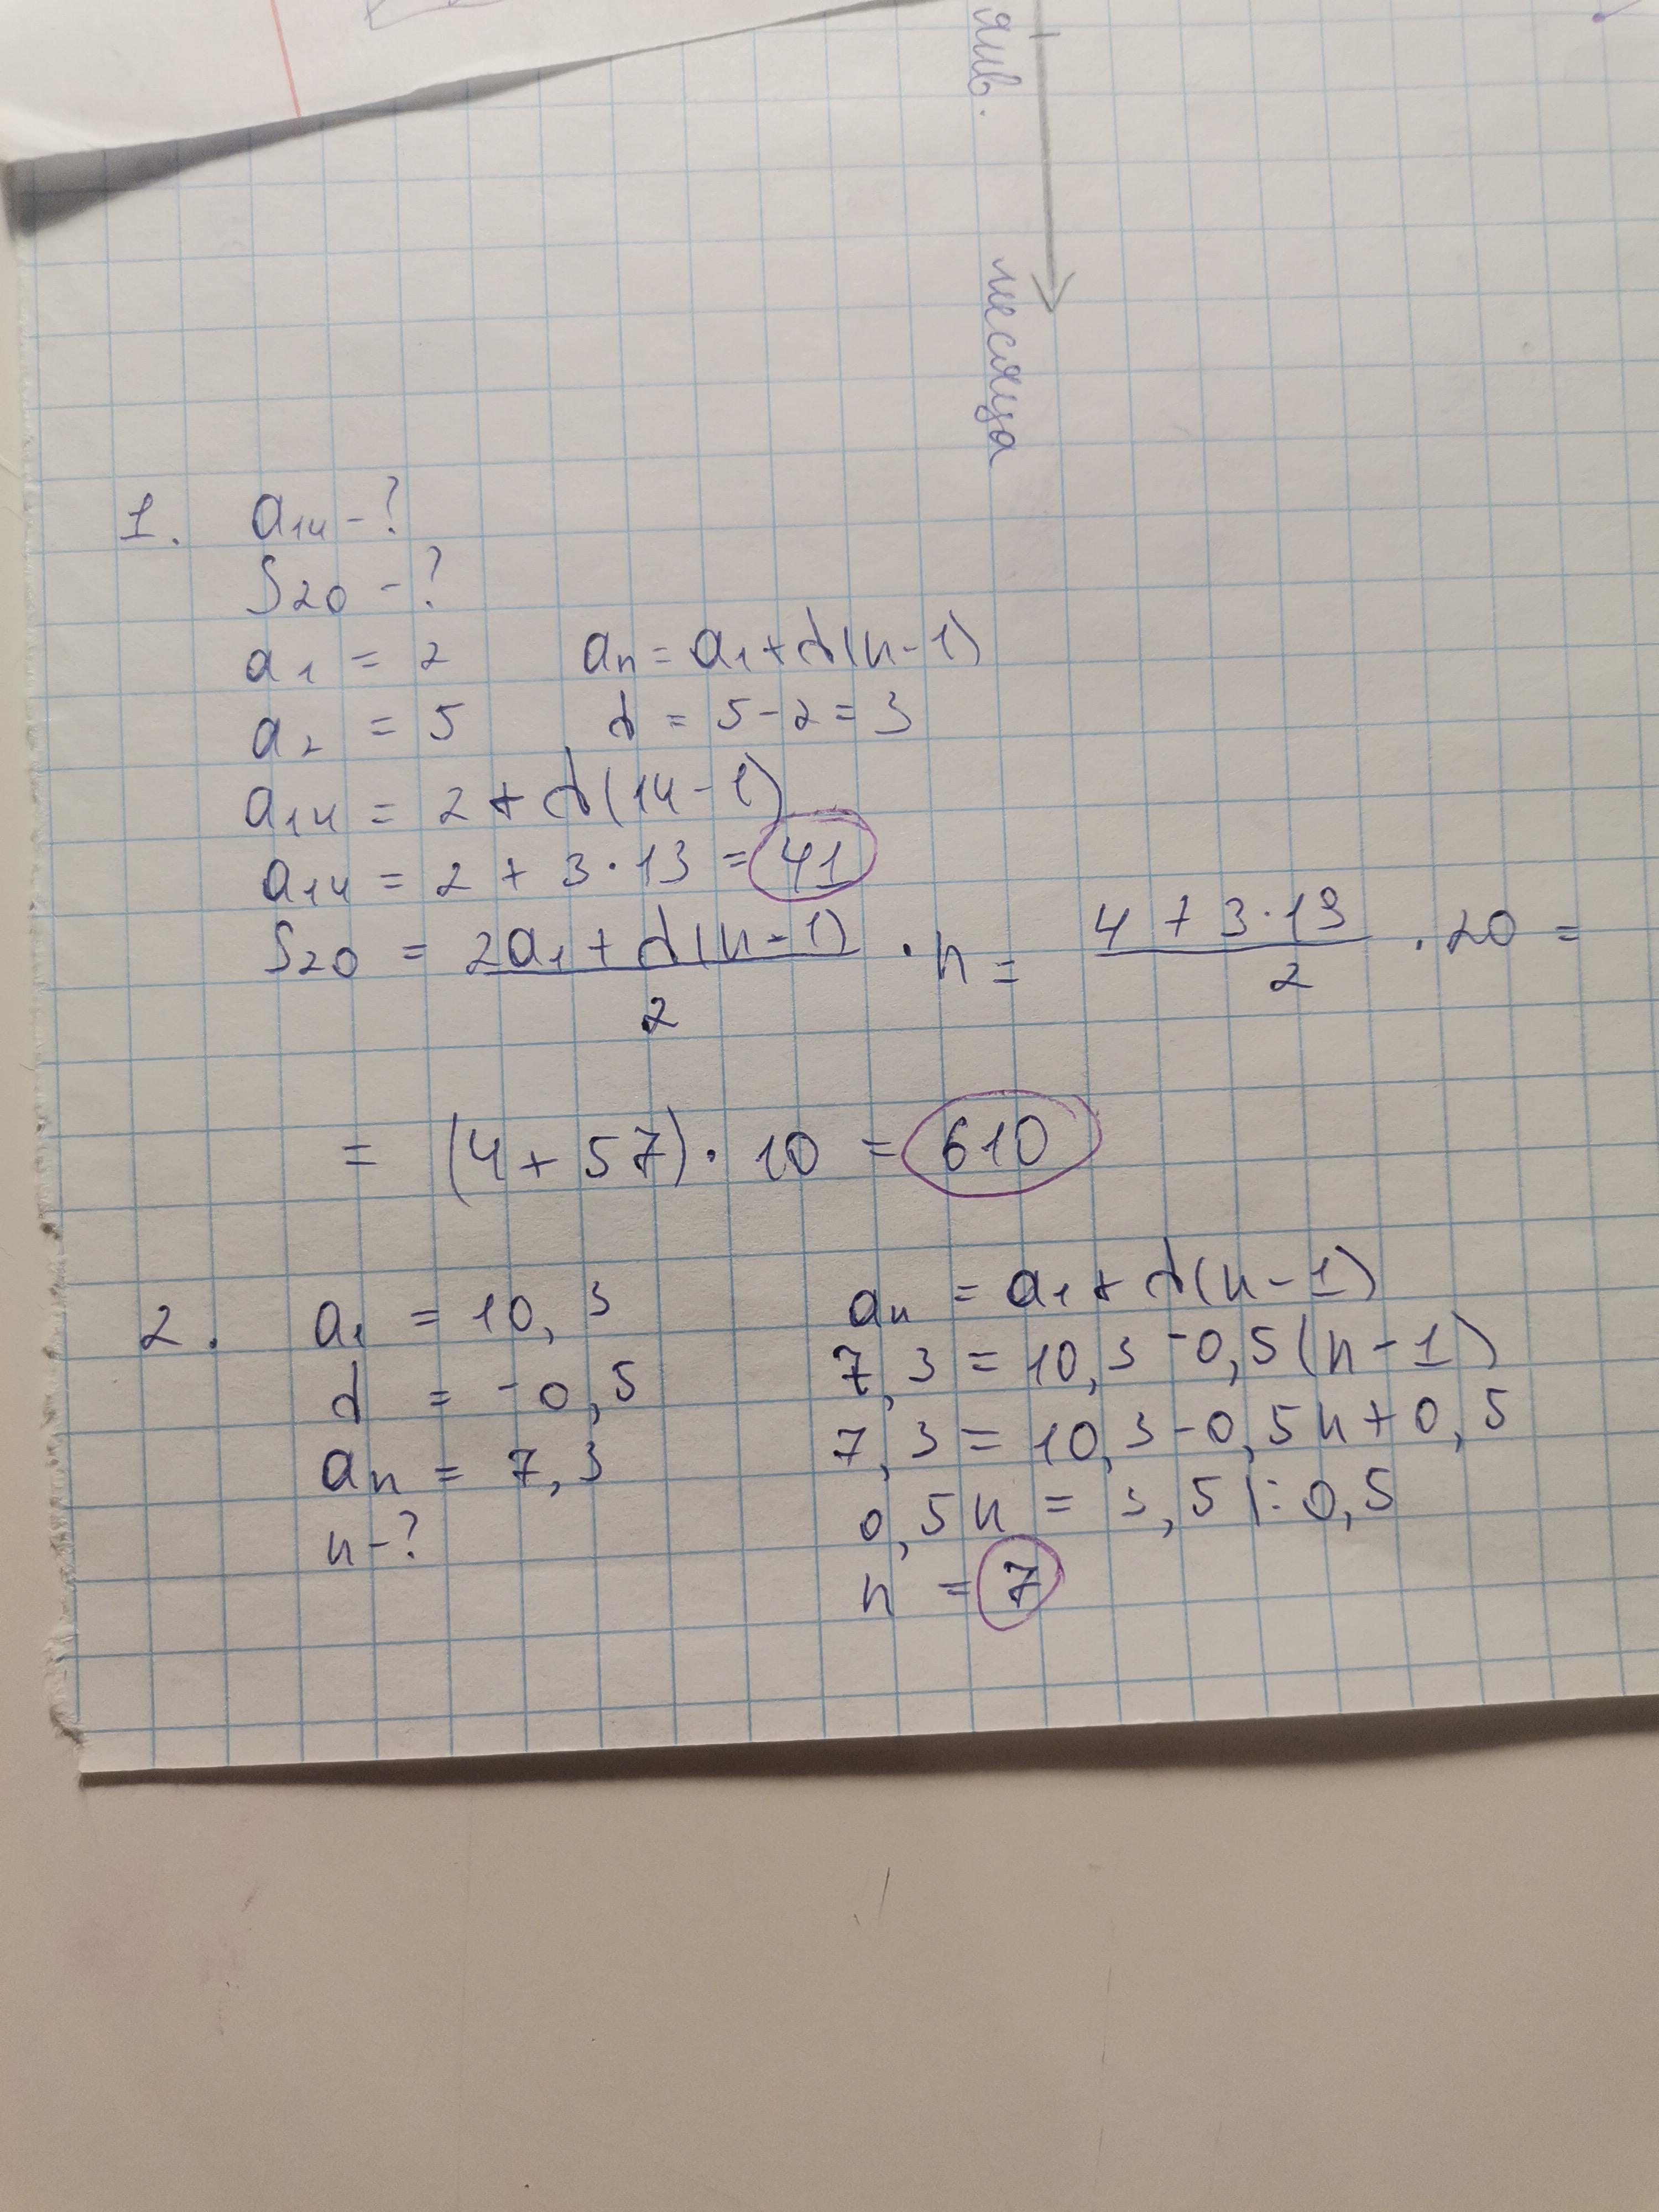 янв.
месяца
1. a₁₄ - ?
S₂₀ - ?
a₁ = 2 aₙ = a₁ + d(n-1)
a₂ = 5 d = 5 - 2 = 3
a₁₄ = 2 + d(14 - 1)
a₁₄ = 2 + 3·13 = 41
S₂₀ = (2a₁ + d(n-1))/2 · n = (4 + 3·19)/2 · 20 =
= (4 + 57) · 10 = 610
2. a₁ = 10,3 aₙ = a₁ + d(n-1)
d = -0,5 7,3 = 10,3 -0,5(n-1)
aₙ = 7,3 7,3 = 10,3 - 0,5n + 0,5
n - ? 0,5n = 3,5 |: 0,5
n = 7